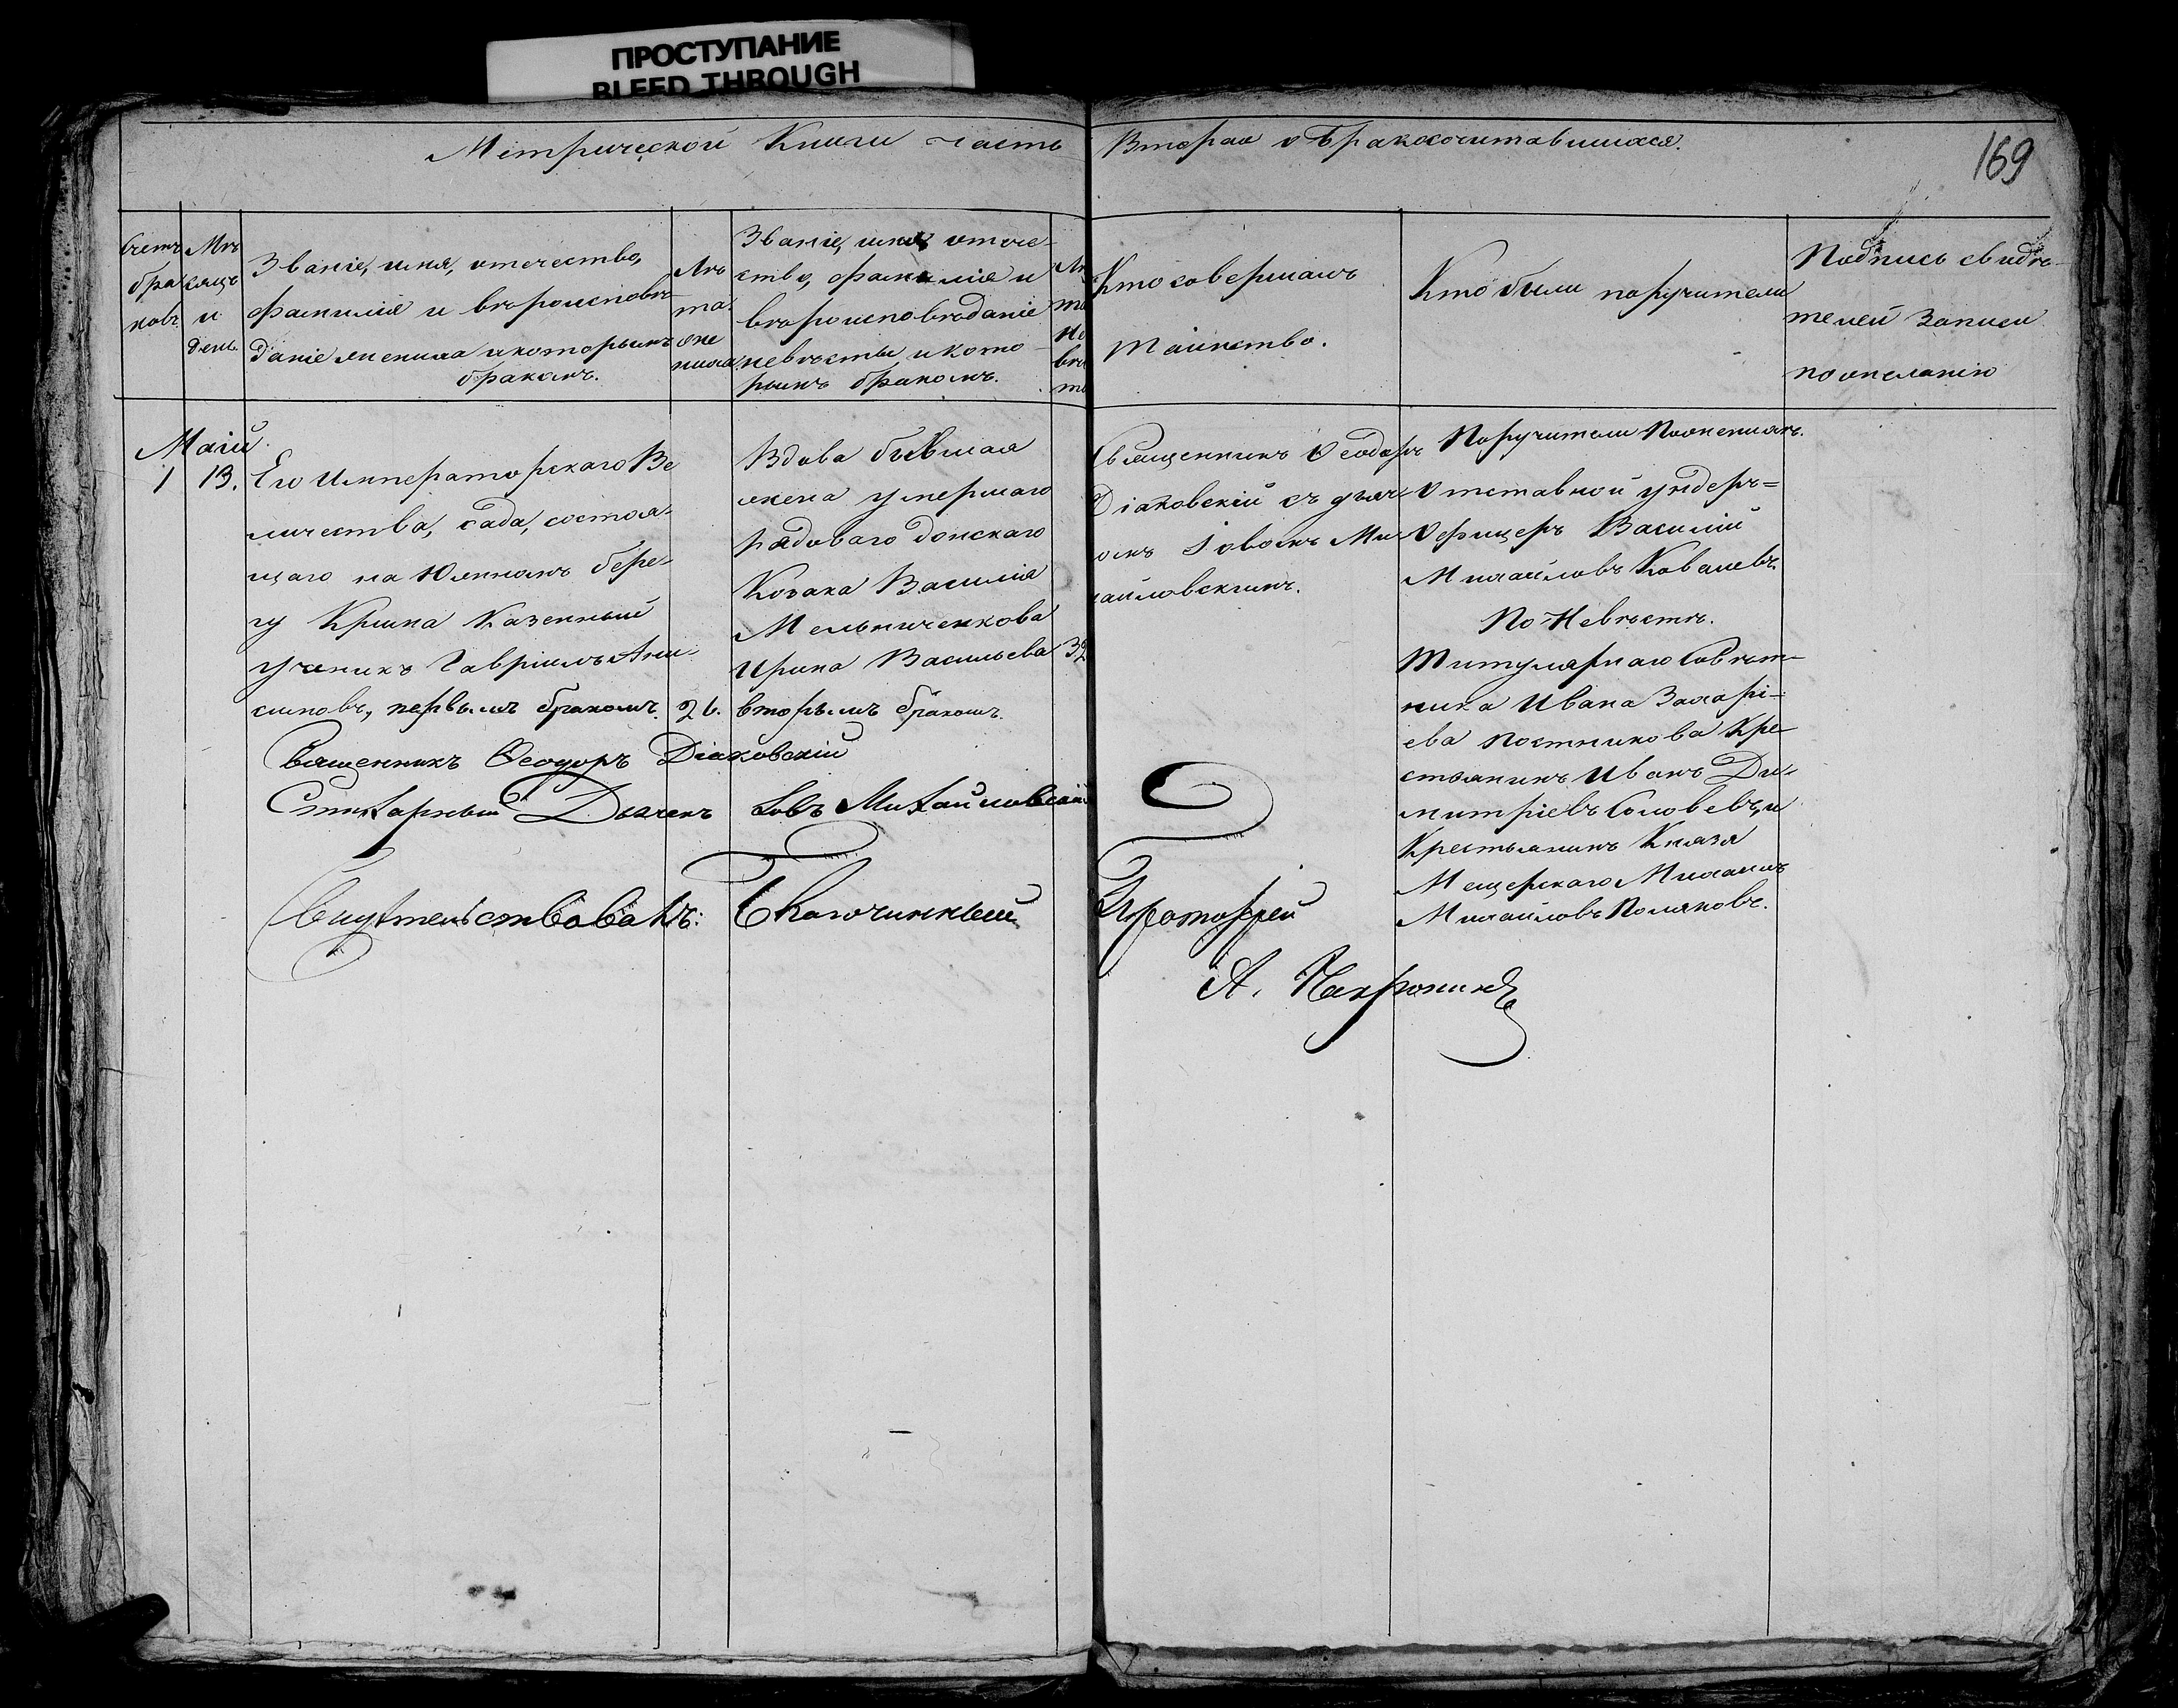 ПРОСТУПАНИЕ
BLEED THROUGH
Метрической Книги часть Вторая о Бракосочитавшихся.
169
Счетъ браковъ
Мѣсяцъ и день.
Званіе, имя, отечество,
фамилія и вѣроисповѣ-
даніе жениха и которымъ
бракомъ.
Лѣта жениха
Званіе, имя, отече-
ство, фамилія и
вѣроисповѣданіе
невѣсты, и кото-
рымъ бракомъ.
Лѣ
та
не
вѣ
ты
Кто совершалъ
таинство.
Кто были поручители
Подпись свидѣ-
телей записи
по желанію
Маій
1
13.
Его Императорскаго Ве
личества, сада, состоя-
щаго на Южномъ бере-
гу Крыма Казенный
ученикъ Гавріилъ Ани-
симовъ, первымъ бракомъ.
26.
Вдова бывшая
жена умершаго
рядоваго донскаго
Козака Василія
Мельниченкова
Ирина Васильева
вторымъ бракомъ.
32
Священникъ Ѳеодоръ
Діаковскій съ дьяч-
омъ Іовомъ Ми-
хайловскимъ.
Поручители По женихѣ.
Отставной ундеръ=
Офицеръ Василій
Михайловъ Ковалевъ.
По Невѣстѣ.
Титулярнаго Совѣт-
ника Ивана Захарі-
ева Постникова Кре-
стьянинъ Иванъ Ди-
митріевъ Соловевъ, и
Крестьянинъ Князя
Мещерскаго Михаилъ
Михайловъ Поляковъ.
Священникъ Ѳеодоръ Діаковскій
Стихарный Дьячекъ Іовъ Михайловскій
Свидѣтельствовалъ: Благочинный Протоіерей
А.